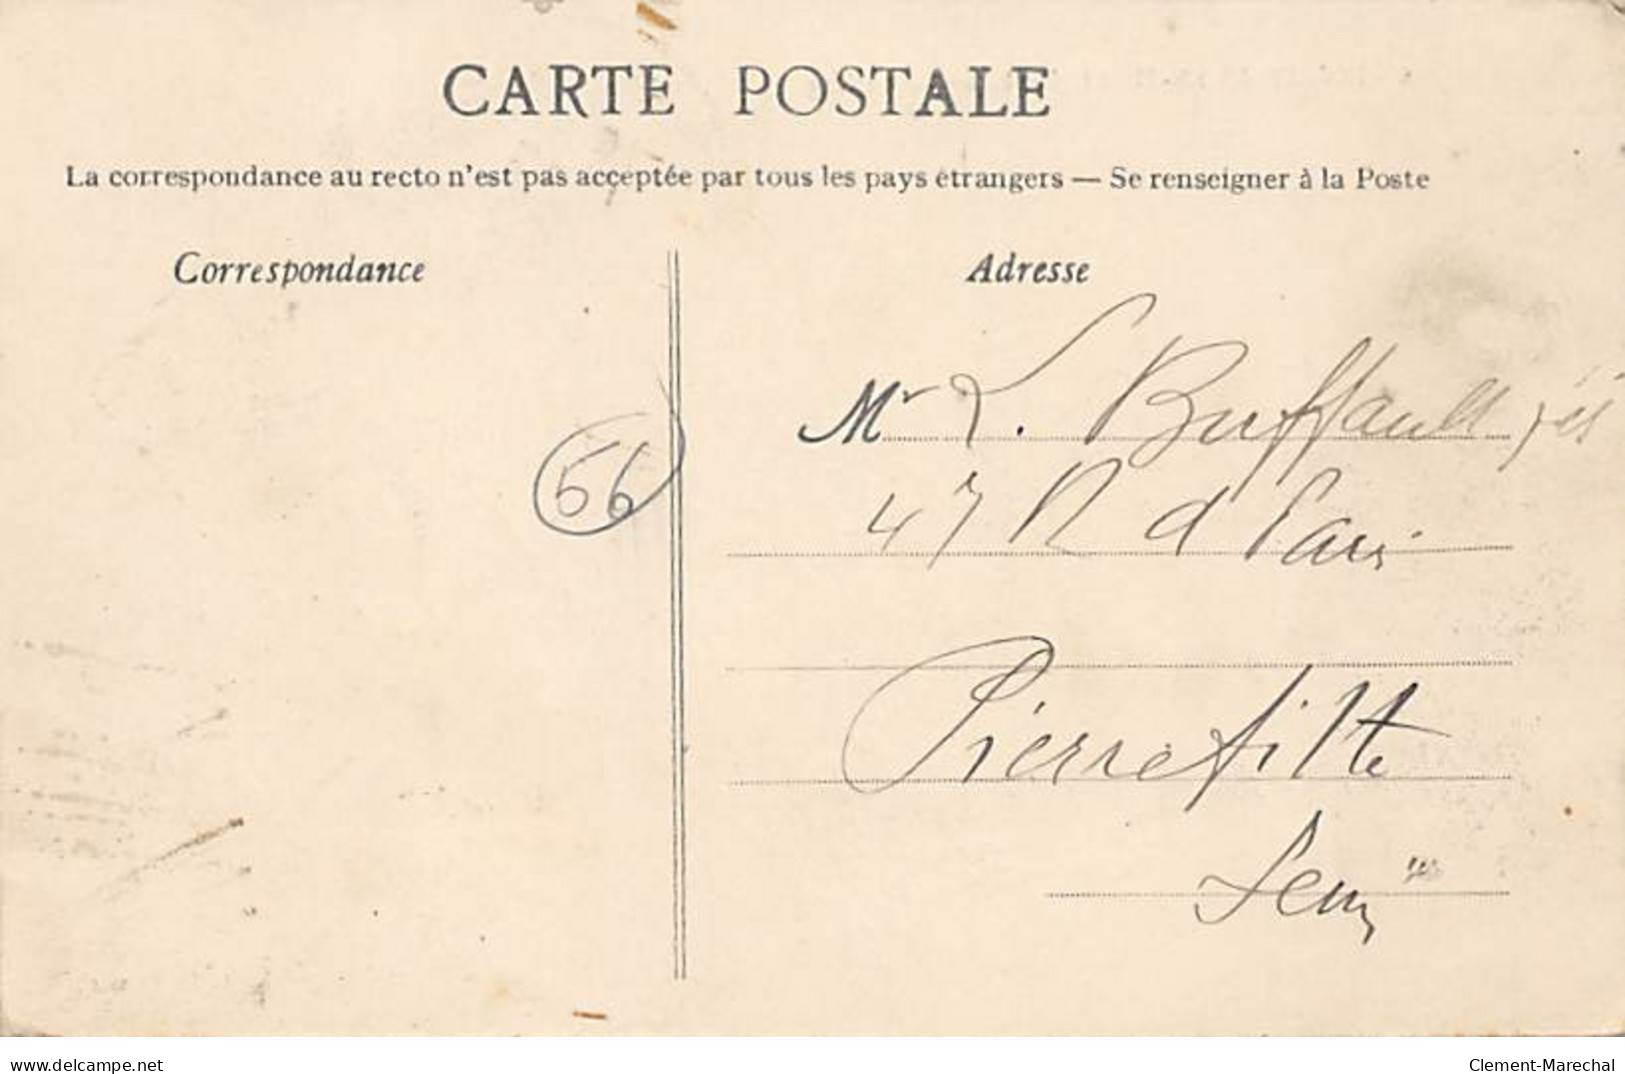 CARTE POSTALE
La correspondance au recto n'est pas acceptée par tous les pays étrangers — Se renseigner à la Poste
Correspondance
Adresse
Mr L. Buffault
66
47 R d Paris
Pierrefitte
Seine
www.delcampe.net
Clement-Marechal